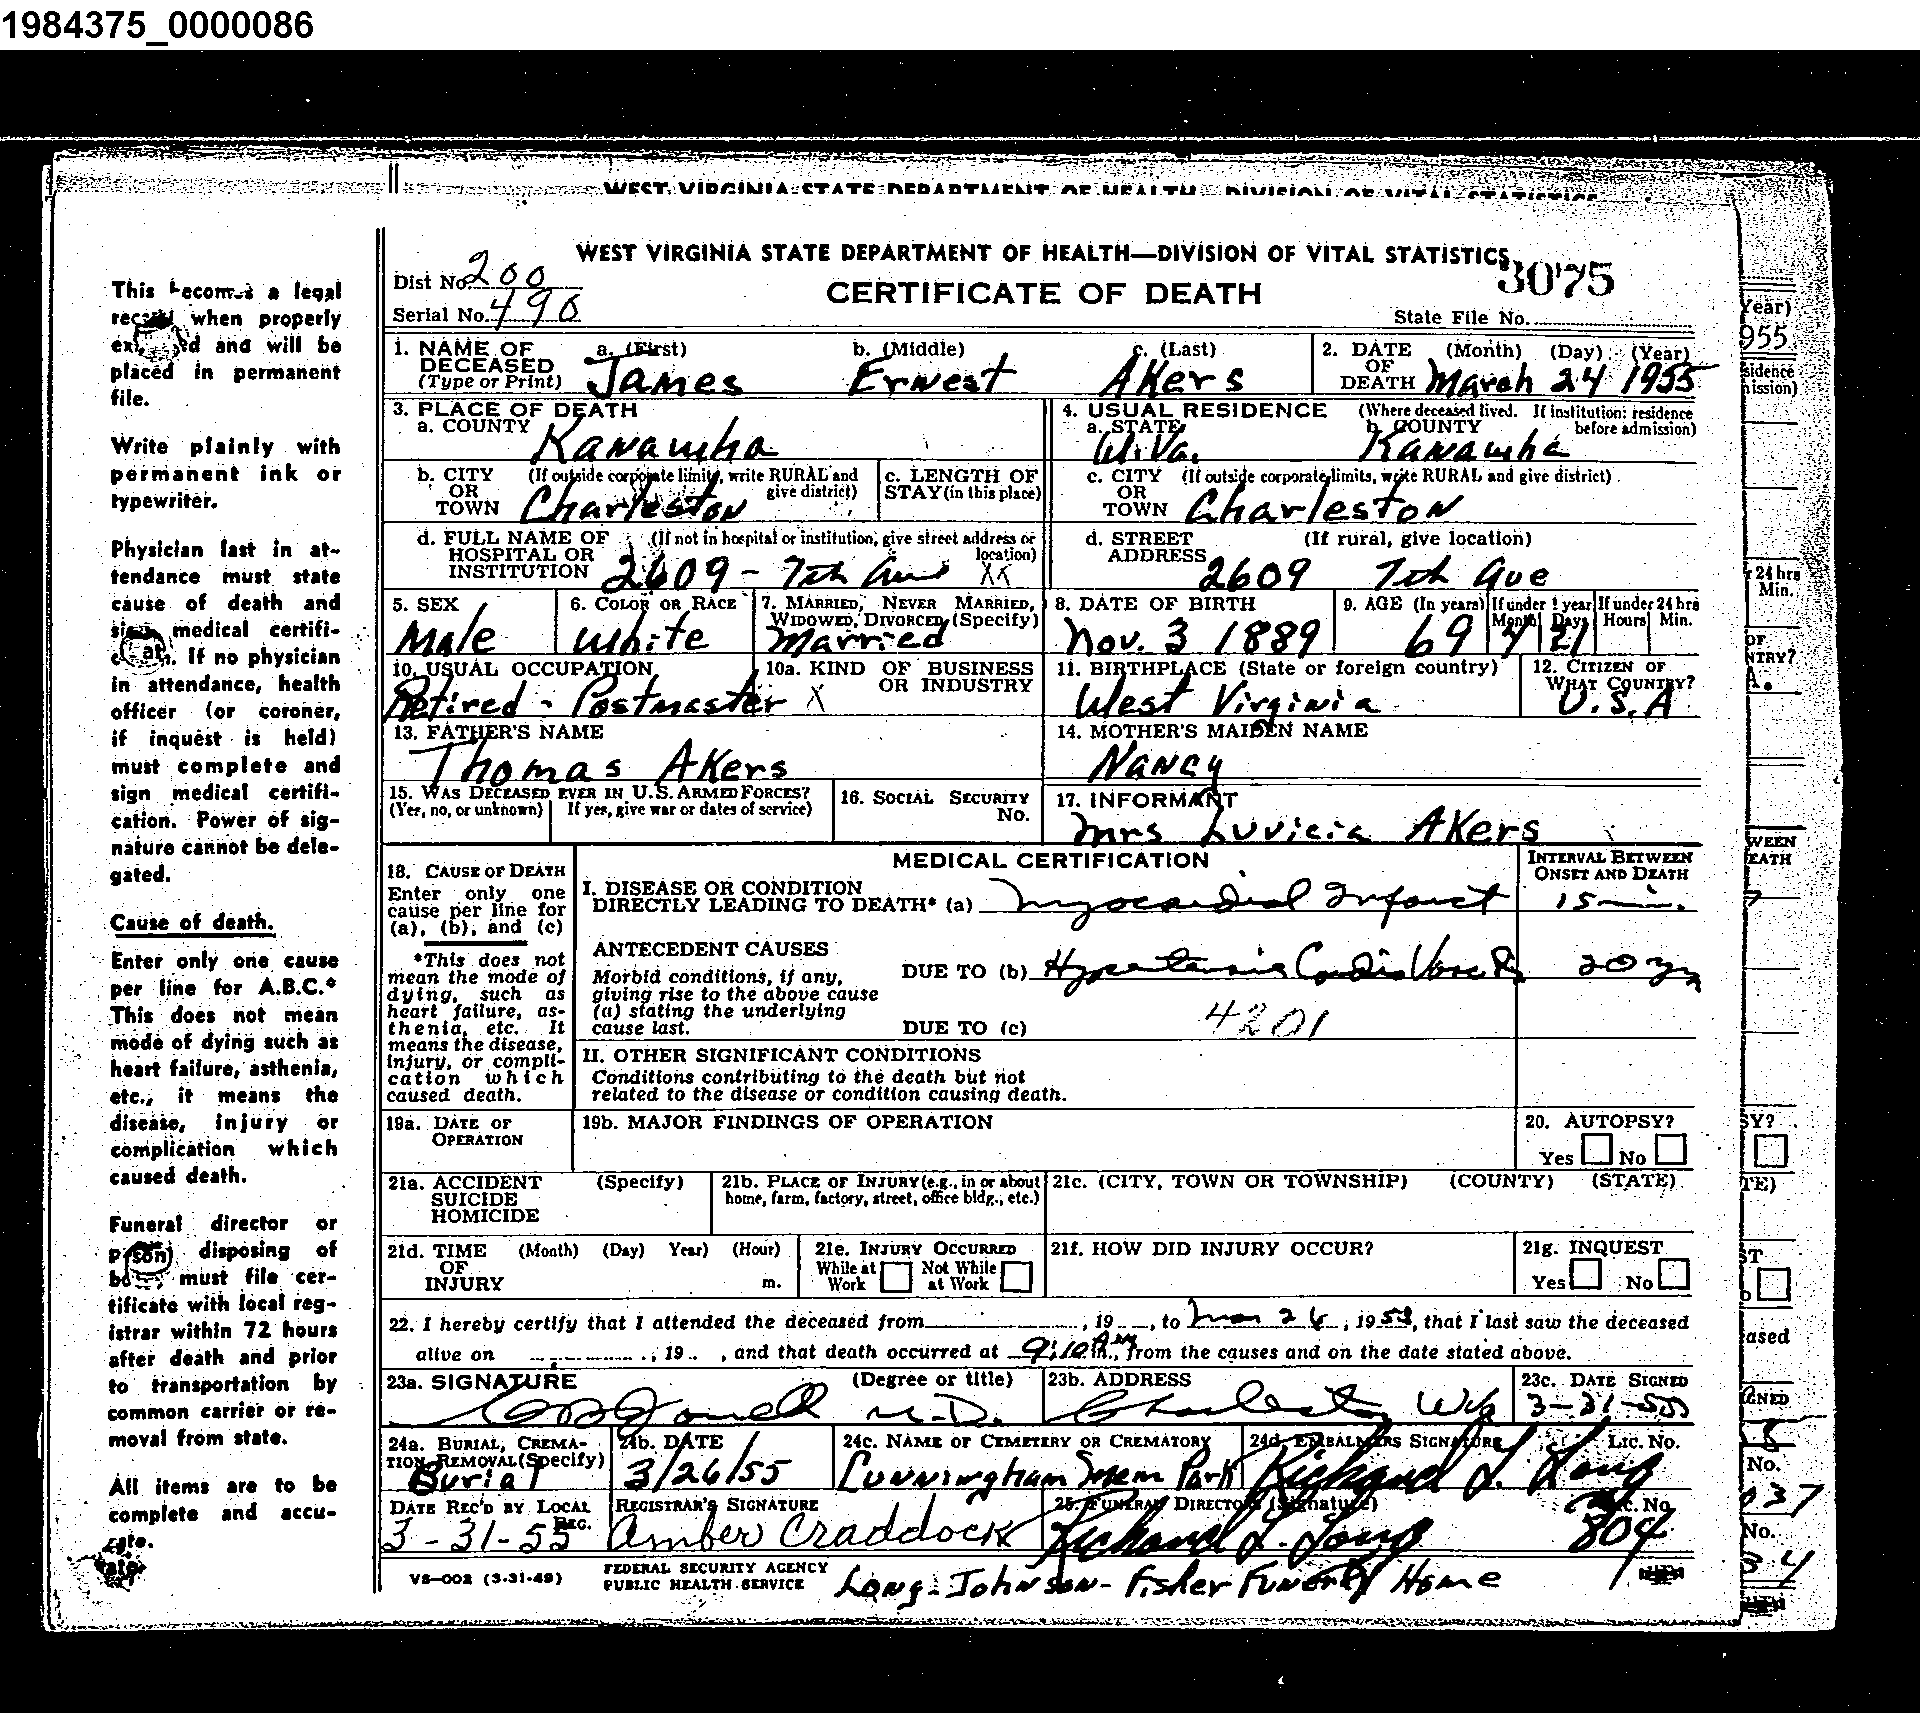 1984375_0000086
WEST VIRGINIA STATE DEPARTMENT OF HEALTH DIVISION OF VITAL STATISTICS
This becomes a legal
record when properly
and will be
placed in permanent
file.
Write plainly with
permanent ink or
typewriter.
Physician last in at-
tendance must state
cause of death and
sign medical certifi-
If no physician
in attendance, health
officer (or coroner,
if inquest is held)
must complete and
sign medical certifi-
cation. Power of sig-
nature cannot be dele-
gated.
Cause of death.
Enter only one cause
per line for A.B.C.*
This does not mean
mode of dying such as
heart failure, asthenia,
etc., it means the
disease, injury or
complication which
caused death.
Funeral director or
person disposing of
must file cer-
tificate with local reg-
istrar within 72 hours
after death and prior
to transportation by
common carrier or re-
moval from state.
All items are to be
complete and accu-
rate.
WEST VIRGINIA STATE DEPARTMENT OF HEALTH—DIVISION OF VITAL STATISTICS
Dist No. 200
Serial No. 490
CERTIFICATE OF DEATH
3075
State File No.
1. NAME OF DECEASED (Type or Print) a. (First) b. (Middle) c. (Last)
James Ernest Akers
2. DATE OF DEATH (Month) (Day) (Year)
March 24 1955
3. PLACE OF DEATH
a. COUNTY Kanawha
4. USUAL RESIDENCE (Where deceased lived. If institution: residence before admission)
a. STATE W. Va. b. COUNTY Kanawha
b. CITY OR TOWN (If outside corporate limits, write RURAL and give district) Charleston
c. LENGTH OF STAY (in this place)
c. CITY OR TOWN (If outside corporate limits, write RURAL and give district) Charleston
d. FULL NAME OF HOSPITAL OR INSTITUTION (If not in hospital or institution, give street address or location) 2609 - 7th Ave XX
d. STREET ADDRESS (If rural, give location) 2609 7th Ave
5. SEX Male
6. COLOR OR RACE White
7. MARRIED, NEVER MARRIED, WIDOWED, DIVORCED (Specify) Married
8. DATE OF BIRTH Nov. 3 1889
9. AGE (In years) 69 If under 1 year Months 4 Days 21 If under 24 hrs Hours Min.
10. USUAL OCCUPATION Retired - Postmaster X
10a. KIND OF BUSINESS OR INDUSTRY
11. BIRTHPLACE (State or foreign country) West Virginia
12. CITIZEN OF WHAT COUNTRY? U.S.A
13. FATHER'S NAME Thomas Akers
14. MOTHER'S MAIDEN NAME Nancy
15. WAS DECEASED EVER IN U.S. ARMED FORCES?
(Yes, no, or unknown) If yes, give war or dates of service)
16. SOCIAL SECURITY No.
17. INFORMANT Mrs Luvicia Akers
18. CAUSE OF DEATH
Enter only one
cause per line for
(a), (b), and (c)
*This does not
mean the mode of
dying, such as
heart failure, as-
thenia, etc. It
means the disease,
injury, or compli-
cation which
caused death.
MEDICAL CERTIFICATION
INTERVAL BETWEEN ONSET AND DEATH
I. DISEASE OR CONDITION
DIRECTLY LEADING TO DEATH* (a) Myocardial Infarct 15 min.
ANTECEDENT CAUSES
Morbid conditions, if any,
giving rise to the above cause
(a) stating the underlying
cause last.
DUE TO (b) Hypertensive Cardio Vasc 20 yrs
DUE TO (c)
4201
II. OTHER SIGNIFICANT CONDITIONS
Conditions contributing to the death but not
related to the disease or condition causing death.
19a. DATE OF OPERATION
19b. MAJOR FINDINGS OF OPERATION
20. AUTOPSY?
Yes No
21a. ACCIDENT SUICIDE HOMICIDE (Specify)
21b. PLACE OF INJURY (e.g., in or about home, farm, factory, street, office bldg., etc.)
21c. (CITY, TOWN OR TOWNSHIP) (COUNTY) (STATE)
21d. TIME OF INJURY (Month) (Day) Year) (Hour) m.
21e. INJURY OCCURRED
While at Work Not While at Work
21f. HOW DID INJURY OCCUR?
21g. INQUEST
Yes No
22. I hereby certify that I attended the deceased from , 19 , to Mar 24, 1955, that I last saw the deceased
alive on , 19 , and that death occurred at 9:10 Am., from the causes and on the date stated above.
23a. SIGNATURE (Degree or title) M.D.
23b. ADDRESS Charleston W Va
23c. DATE SIGNED 3-31-55
24a. BURIAL, CREMATION, REMOVAL (Specify) Burial
24b. DATE 3/26/55
24c. NAME OF CEMETERY OR CREMATORY Cunningham Mem Park
24d. EMBALMERS SIGNATURE Lic. No. Richard L. Long
DATE REC'D BY LOCAL REG. 3-31-55
REGISTRAR'S SIGNATURE Amber Craddock
25. FUNERAL DIRECTOR (Signature) Lic. No. Richard L. Long 804
VS-002 (3-31-49)
FEDERAL SECURITY AGENCY
PUBLIC HEALTH SERVICE
Long-Johnson-Fisher Funeral Home